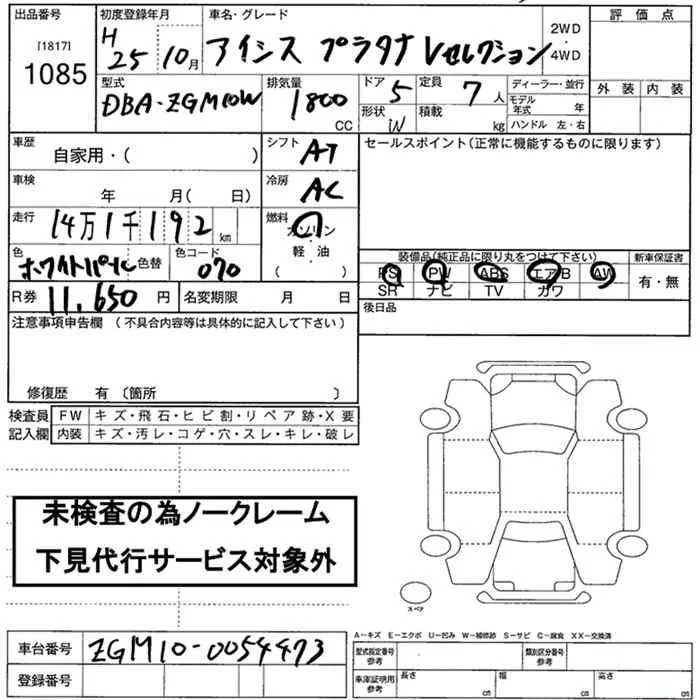 出品番号 初度登録年月 車名・グレード 評価点
[1817]
1085
H
25 10月 アイシス プラタナ Vセレクション 2WD・4WD
型式 排気量 ドア 5 定員 7人 ディーラー・並行 外装 内装
DBA-ZGM10W 1800 CC 形状 IN 積載 kg モデル年式 年
ハンドル 左・右
車歴 自家用・( ) シフト AT セールスポイント(正常に機能するものに限ります)
車検 年 月( 日) 冷房 AC
走行 14万1千192km 燃料 ガソリン・軽油( )
色 ホワイトパール 色替 色コード 070 装備品(純正品に限り丸をつけて下さい) 新車保証書
PS PW ABS エアB AW 有・無
SR ナビ TV カワ
R券 11,650円 名変期限 月 日 後日品
注意事項申告欄 (不具合内容等は具体的に記入して下さい)
修復歴 有 〔箇所 〕
検査員記入欄 FW キズ・飛石・ヒビ割・リペア跡・X要
内装 キズ・汚レ・コゲ・穴・スレ・キレ・破レ
未検査の為ノークレーム
下見代行サービス対象外
スペア
A−キズ E−エクボ U−凹み W−補修跡 S−サビ C−腐食 XX−交換済
車台番号 ZGM10-0054473 型式指定番号 参考 類別区分番号 参考
登録番号 車庫証明用 参考 長さ cm 幅 cm 高さ cm